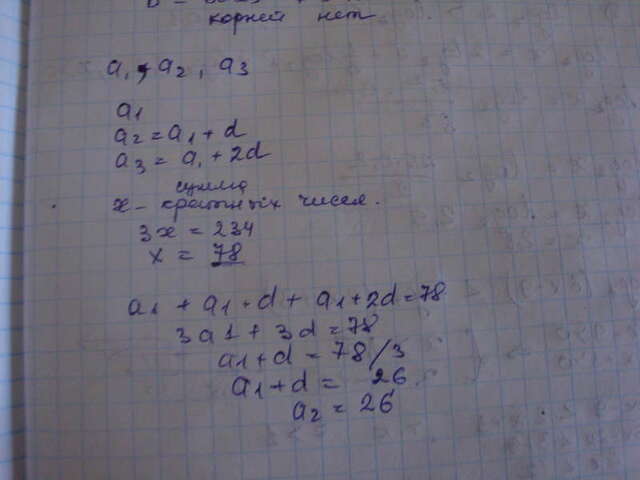 корней нет
a1, a2, a3
a1
a2 = a1 + d
a3 = a1 + 2d
сумма
x - кратных чисел.
3x = 234
x = 78
a1 + a1 + d + a1 + 2d = 78
3a1 + 3d = 78
a1 + d = 78/3
a1 + d = 26
a2 = 26